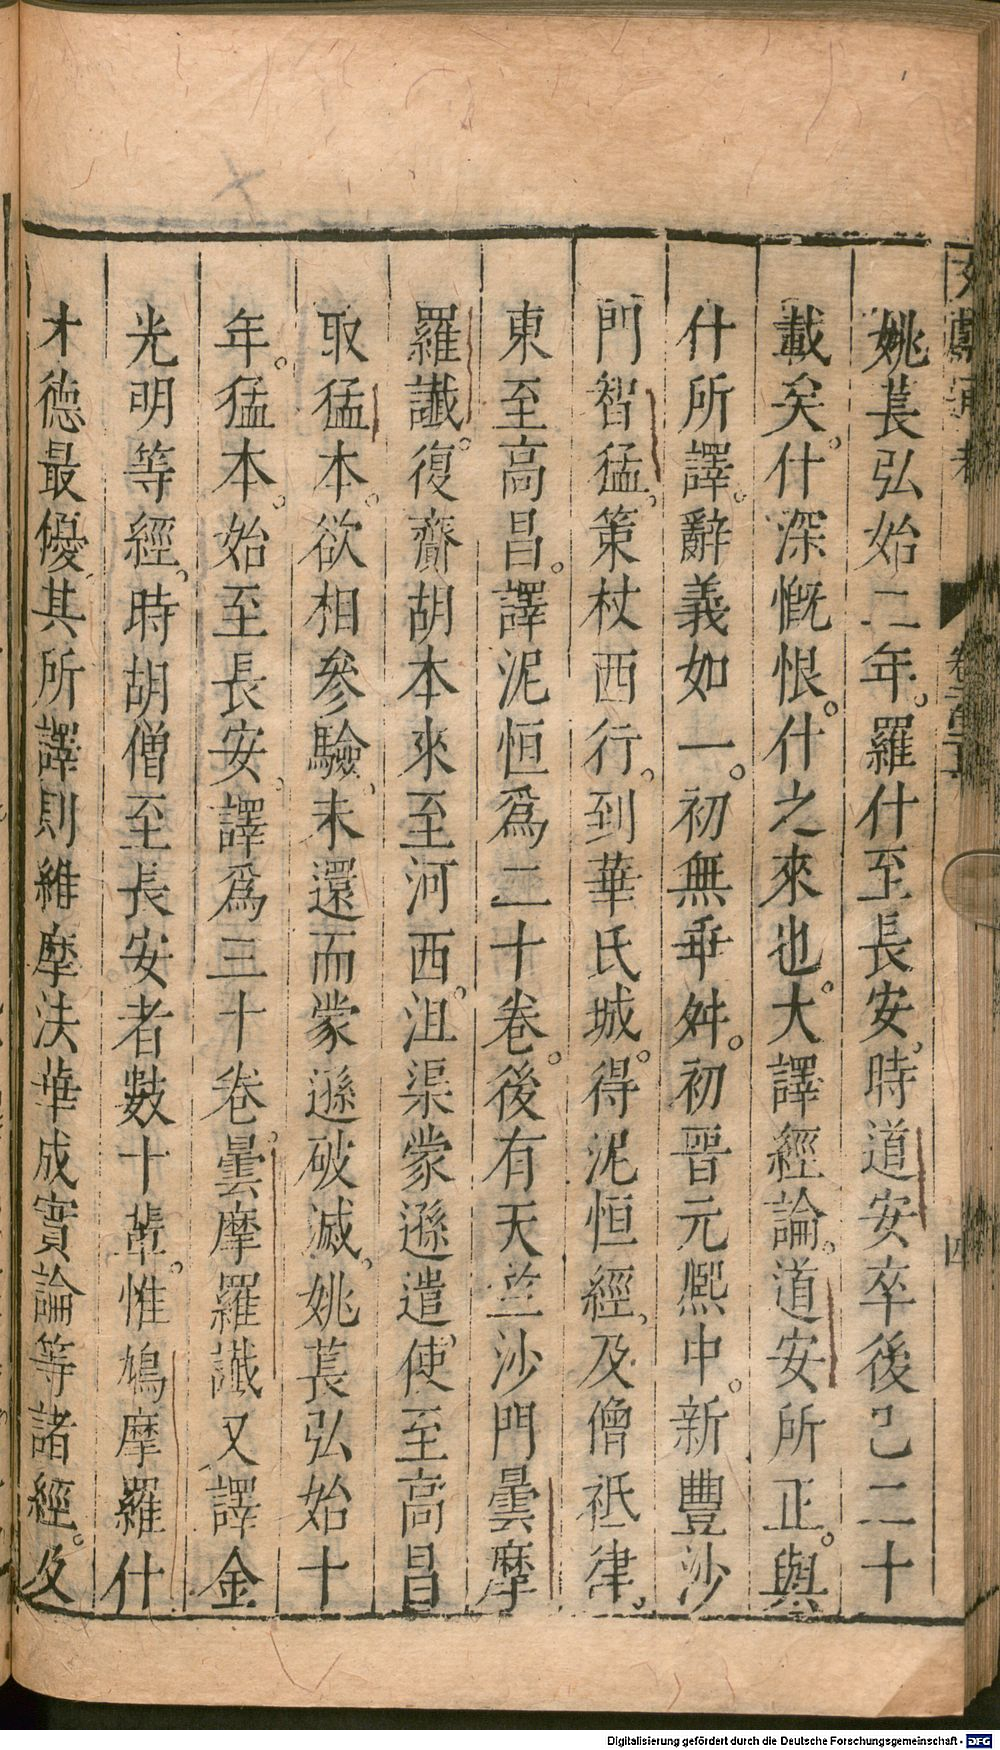 文獻通考 卷二百二十 四
姚萇弘始二年。羅什至長安。時道安卒後已二十
載矣。什深慨恨。什之來也。大譯經論。道安所正。與
什所譯。辭義如一。初無乖舛。初晉元熙中。新豐沙
門智猛。策杖西行。到華氏城。得泥恒經。及僧祇律。
東至高昌。譯泥恒爲二十卷。後有天竺沙門曇摩
羅讖。復齎胡本來至河西。沮渠蒙遜遣使。至高昌
取猛本。欲相參驗。未還而蒙遜破滅。姚萇弘始十
年。猛本。始至長安。譯爲三十卷。曇摩羅讖又譯金
光明等經。時胡僧至長安者數十輩。惟鳩摩羅什
才德最優。其所譯則維摩法華成實論等諸經。及
Digitalisierung gefördert durch die Deutsche Forschungsgemeinschaft - DFG